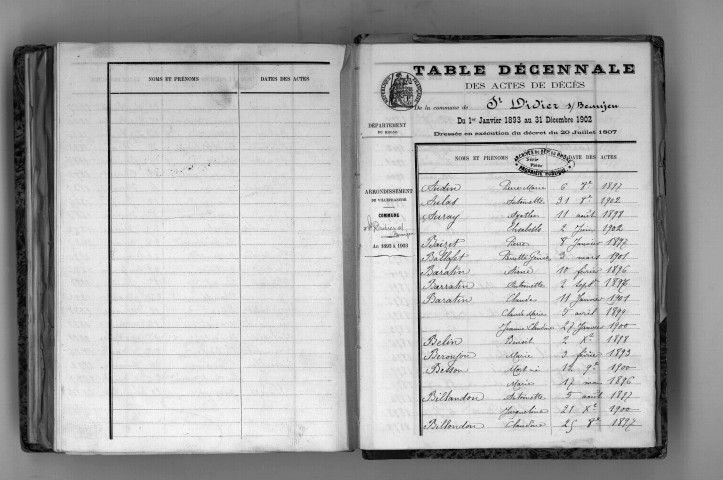 NOMS ET PRÉNOMS DATES DES ACTES
TABLE DÉCENNALE
DES ACTES DE DÉCÈS
De la commune de St Didier s/Beaujeu
Du 1er Janvier 1893 au 31 Décembre 1902
Dressée en exécution du décret du 20 Juillet 1807
DÉPARTEMENT
DU RHÔNE
ARRONDISSEMENT
DE VILLEFRANCHE
COMMUNE
An 1893 à 1903
NOMS ET PRÉNOMS DATE DES ACTES
ARCHIVES DU DÉPT DU RHÔNE
Série
Pièce
PROPRIÉTÉ PUBLIQUE
Audin Pierre Marie 6 8e 1897
Aulas Antoinette 31 8e 1902
Auray Agathe 11 août 1898
Elisabeth 2 Juin 1902
Baizet Pierre 8 Janvier 1897
Ballofet Pierrette 3 mars 1901
Baratin 10 février 1896
Barratin Antoinette 2 sept 1896
Baratin Claude 11 Janvier 1901
Claude Marie 5 avril 1899
Jeanne Claudine 27 Janvier 1900
Belin Benoit 2 Xe 1898
Beroujon Marie 3 février 1893
Besson Mort né 12 9e 1900
Marie 17 mai 1896
Billandon Antoinette 5 août 1897
Jacqueline 21 Xe 1900
Billondon Claudine 25 8e 1897